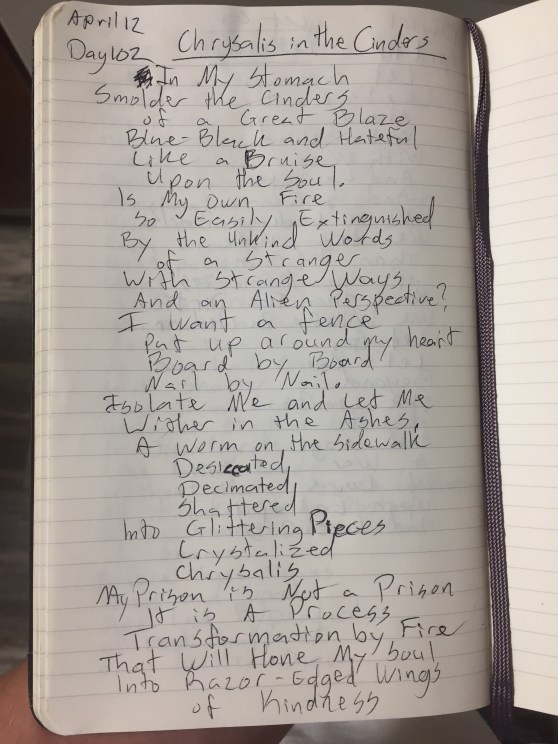 April 12
Day 102
Chrysalis in the Cinders
In My Stomach
Smolder the Cinders
of a Great Blaze
Blue-Black and Hateful
Like a Bruise
Upon the Soul.
Is My Own Fire
So Easily Extinguished
By the Unkind Words
of a Stranger
With Strange Ways
And an Alien Perspective?
I want a fence
Put up around my heart
Board by Board
Nail by Nail.
Isolate Me and Let Me
Wither in the Ashes,
A worm on the sidewalk
Desiccated,
Decimated,
Shattered
Into Glittering Pieces
Crystalized
Chrysalis
My Prison is Not a Prison
It is A Process
Transformation by Fire
That Will Hone My Soul
Into Razor-Edged Wings
of Kindness